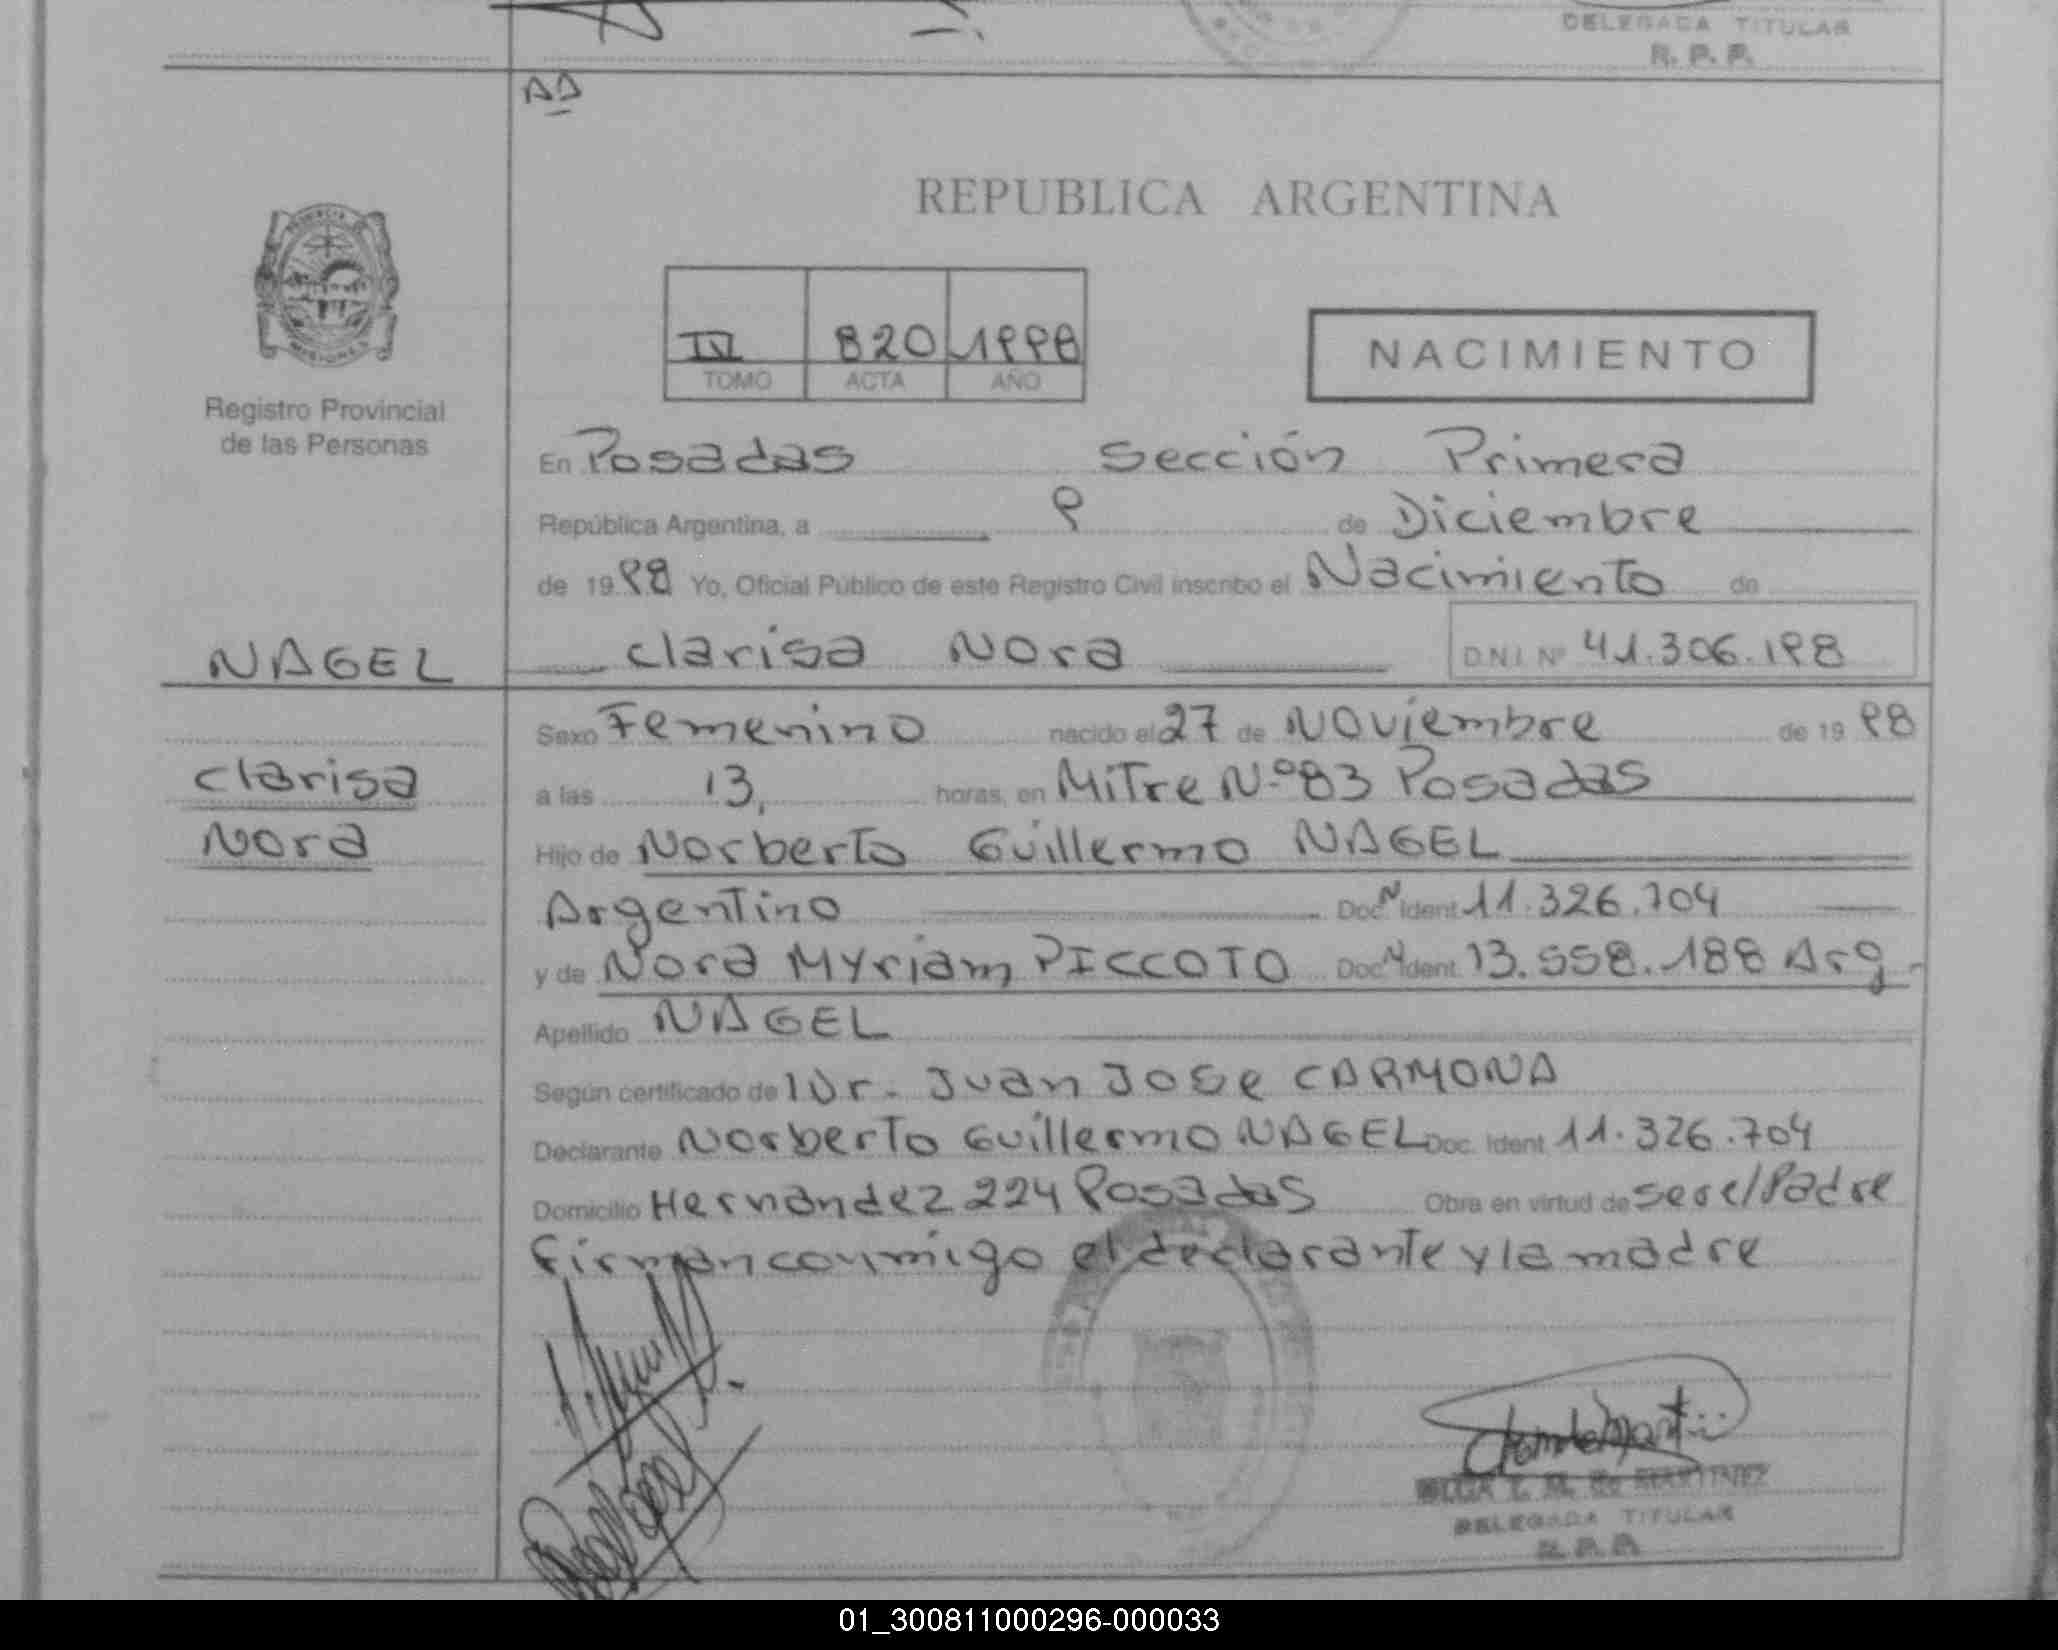 DELEGADA TITULAR
R. P. P.
AD
REPUBLICA ARGENTINA
PROVINCIA
MISIONES
Registro Provincial
de las Personas
IV 820 1998
TOMO ACTA AÑO
NACIMIENTO
En Posadas Sección Primera
República Argentina, a 9 de Diciembre
de 19 98 Yo, Oficial Público de este Registro Civil inscribo el Nacimiento de
NAGEL Clarisa Nora D.N.I. Nº 41.306.198
Sexo Femenino nacido el 27 de Noviembre de 19 98
Clarisa
a las 13, horas, en Mitre Nº 83 Posadas
Nora
Hijo de Norberto Guillermo NAGEL
Argentino Doc. Ident. 11.326.704
y de Nora Myriam PICCOTO Doc. Ident. 13.558.188 Arg
Apellido NAGEL
Según certificado de Dr. Juan Jose CARMONA
Declarante Norberto Guillermo NAGEL Doc. Ident 11.326.704
Domicilio Hernandez 224 Posadas Obra en virtud de ser el Padre
Firman conmigo el declarante y la madre
OLGA de MARTINEZ
DELEGADA TITULAR
R. P. P.
01_300811000296-000033